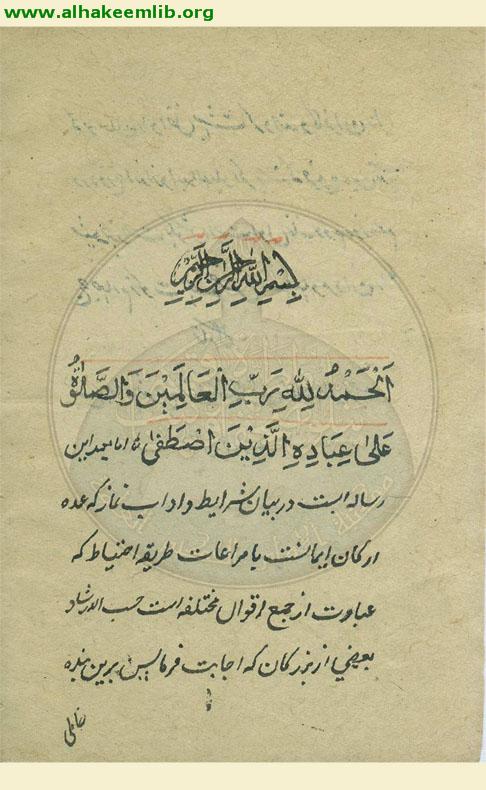 www.alhakeemlib.org
بسم الله الرحمن الرحيم
اَلْحَمْدُ لِلّٰهِ رَبِّ الْعَالَمِيْنَ وَالصَّلٰوةُ
عَلٰى عِبَادِهِ الَّذِيْنَ اصْطَفٰى اما بعد این
رساله است در بیان شرایط و اداب نماز که عمده
ارکان ایمانست با مراعات طریقه احتیاط که
عبارت از جمع اقوال مختلفه است حسب الارشاد
بعضی از بزرکان که اجابت فرمایش برین بنده